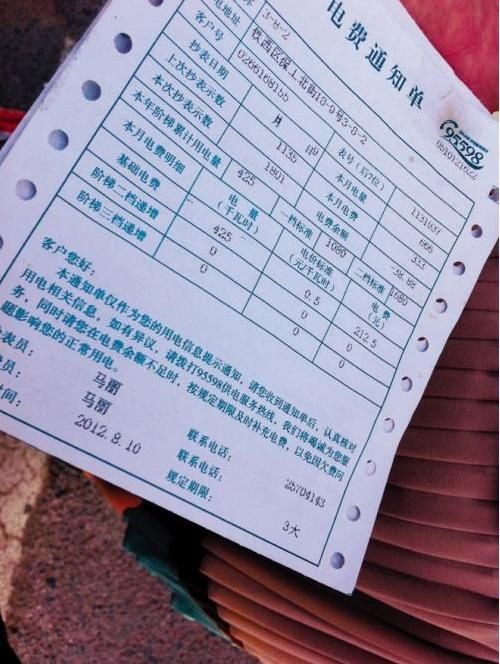 电费通知单
95598
0510121622
3-8-2
电地址 铁西区保工北街10-9号3-8-2
客户号 0266168155
抄表日期 月 日9 表号(后7位) 1131037
上次抄表示数 1135 本月电量 666
本次抄表示数 1801 本月电费 333
本年阶梯累计用电量 425 电费余额 -38.88
本月电费明细 电量(千瓦时) 二档标准 1080 电价标准(元/千瓦时) 二档标准 1680 电费(元)
基础电费 425 0.5 212.5
阶梯二档递增 0 0 0
阶梯三档递增 0 0 0
客户您好:
本通知单仅作为您的用电信息提示通知,请您收到通知单后,认真核对
用电相关信息,如有异议,请拨打95598供电服务热线,我们将竭诚为您服
务,同时请您在电费余额不足时,按规定期限及时补充电费,以免因欠费问
题影响您的正常用电。
表员: 马丽 联系电话:
员: 马丽 联系电话: 25704143
时间: 2012.8.10 规定期限: 3天